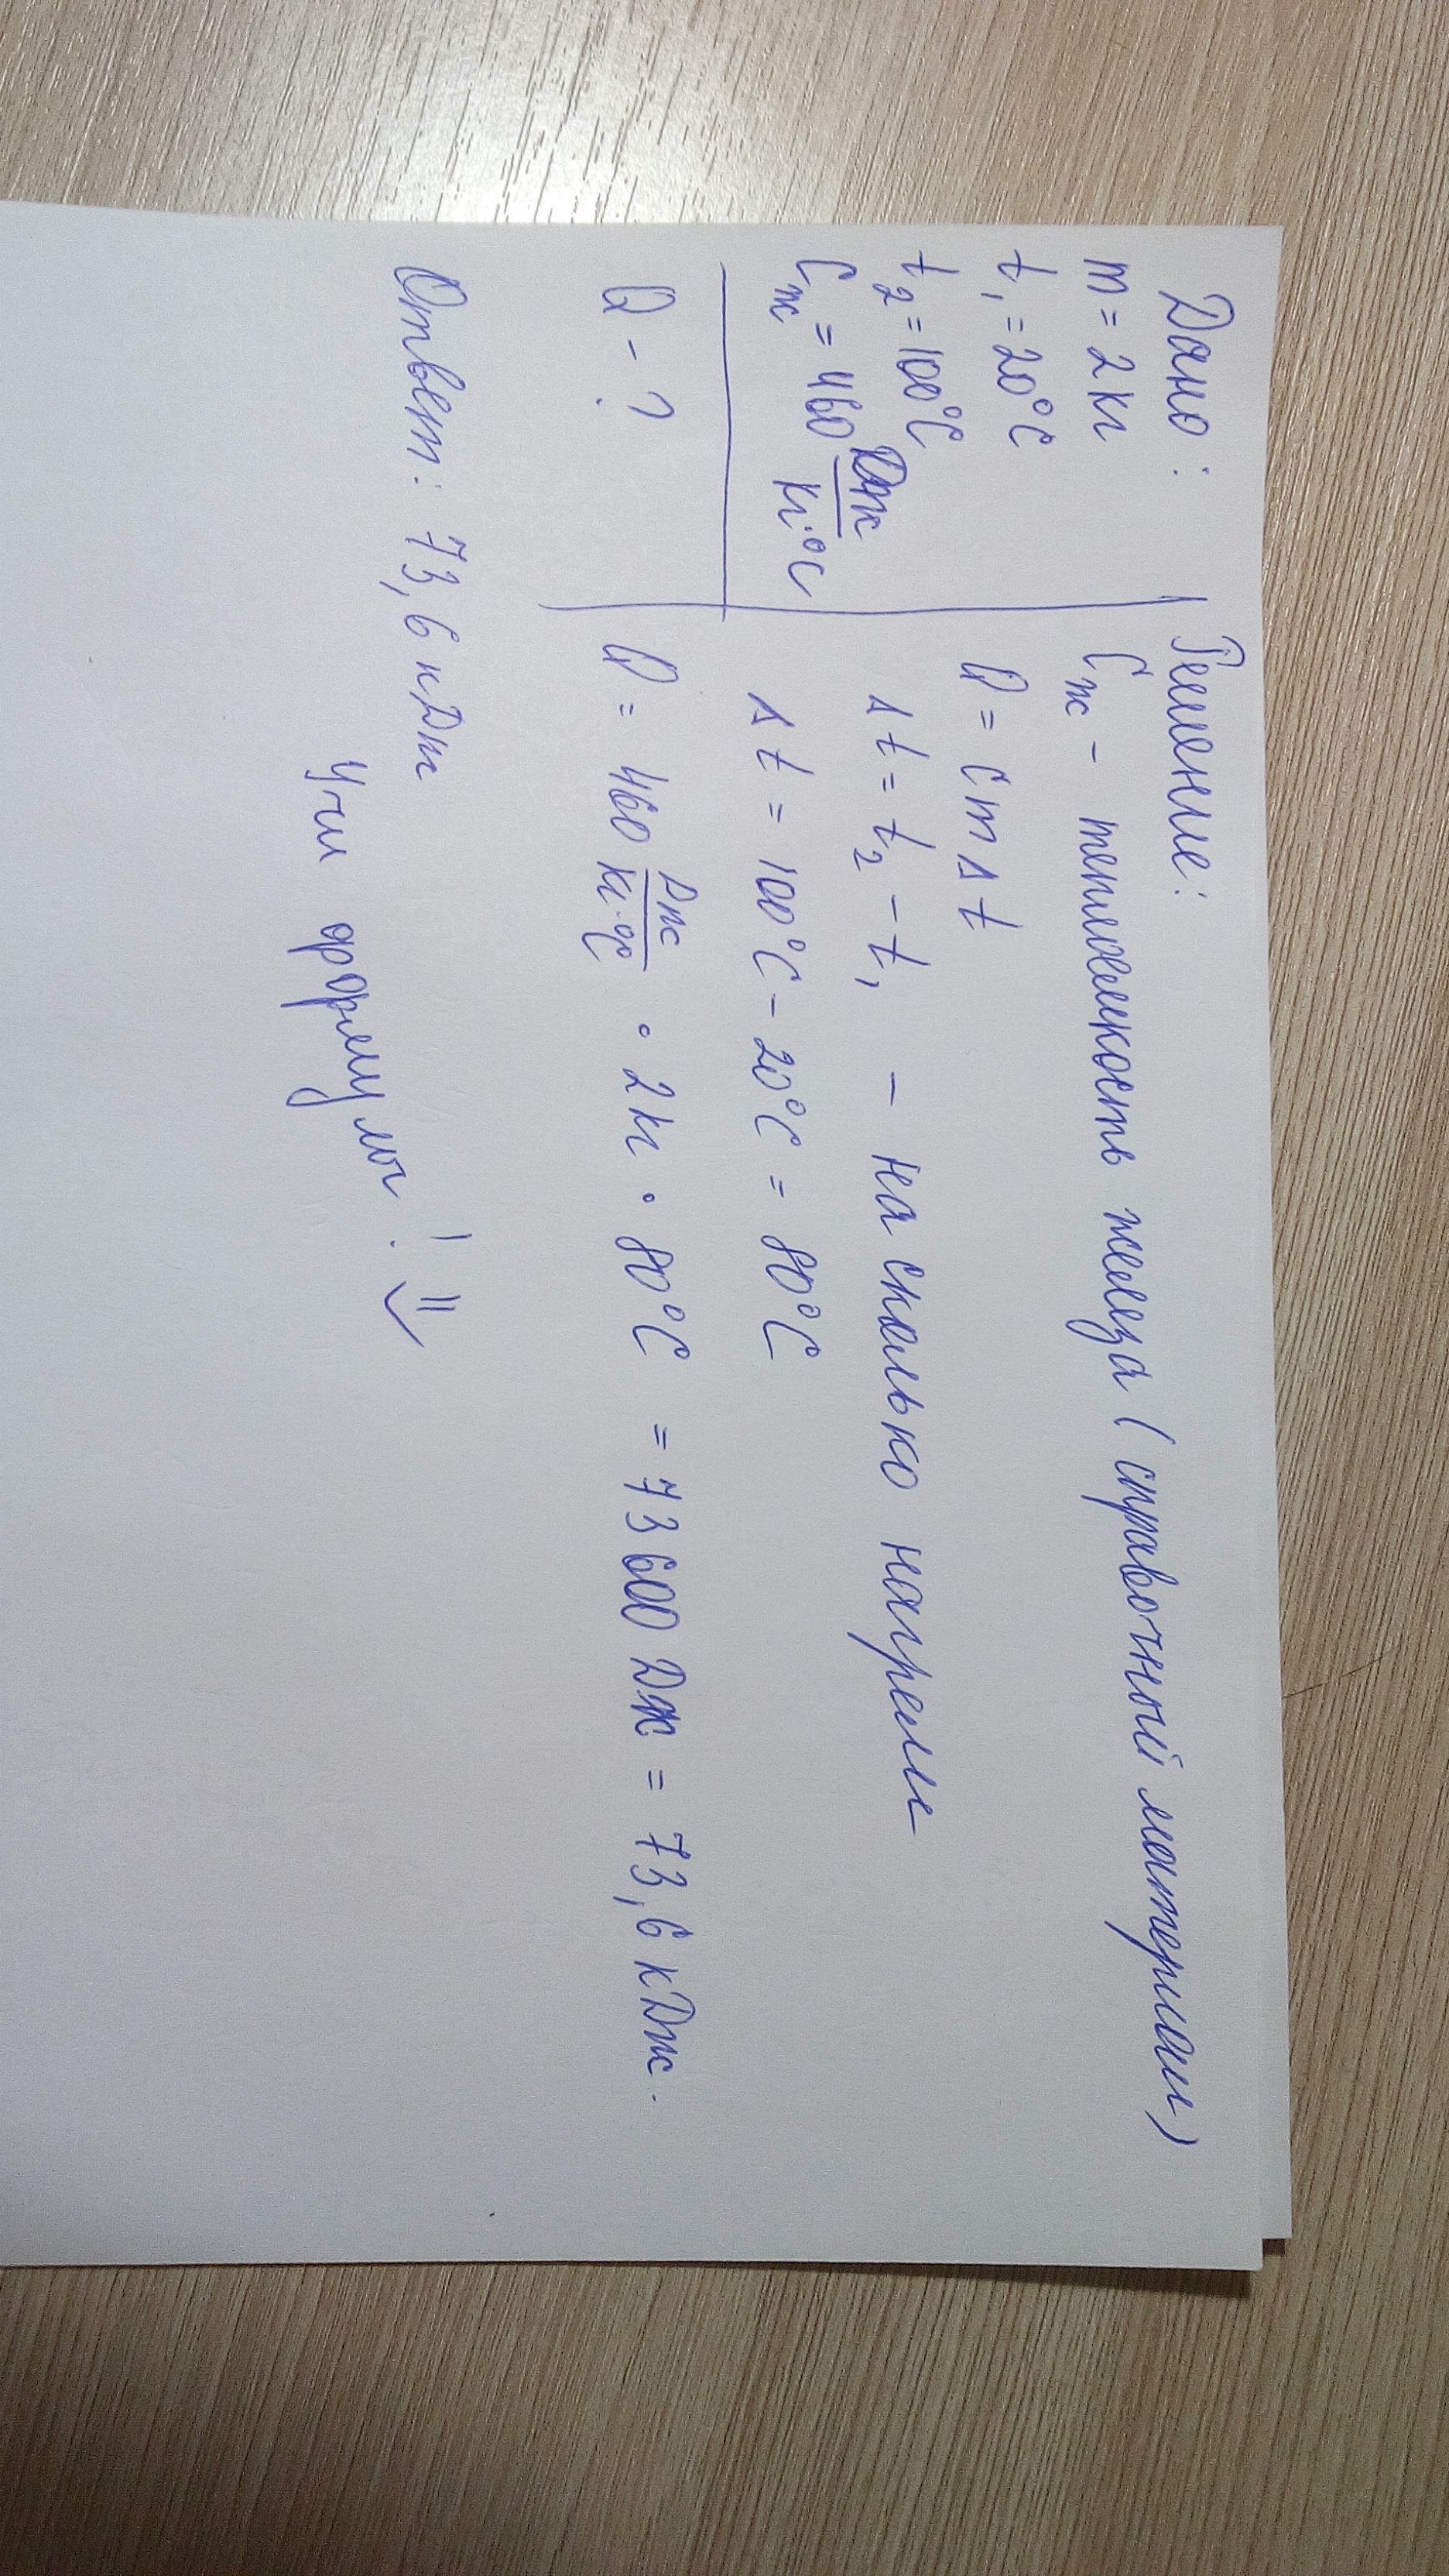 Дано:
m = 2 кг
t₁ = 20°C
t₂ = 100°C
Cж = 460 Дж/кг·°C
Q - ?
Решение:
Cж - теплоемкость железа (справочный материал)
Q = c m Δt
Δt = t₂ - t₁ - на сколько нагрели
Δt = 100°C - 20°C = 80°C
Q = 460 Дж/кг·°C · 2 кг · 80°C = 73 600 Дж = 73,6 кДж.
Ответ: 73,6 кДж
Учи формулы! =)